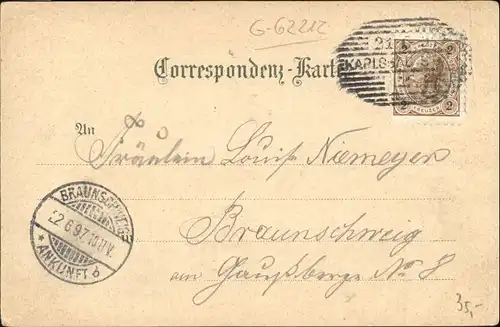 G-62212
Correspondenz-Karte
KARLSBAD
2 2
KREUZER
An
Fräulein Louise Niemeyer
Braunschweig
am Gaußberge No 8
BRAUNSCHWEIG
22.6.97.10-11V.
* ANKUNFT. b
35,-